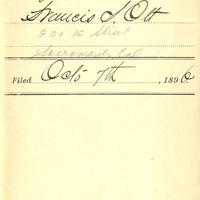 Francis S. Ott
200 K Street
Sacramento Cal
Filed Oct. 7th, 1896.